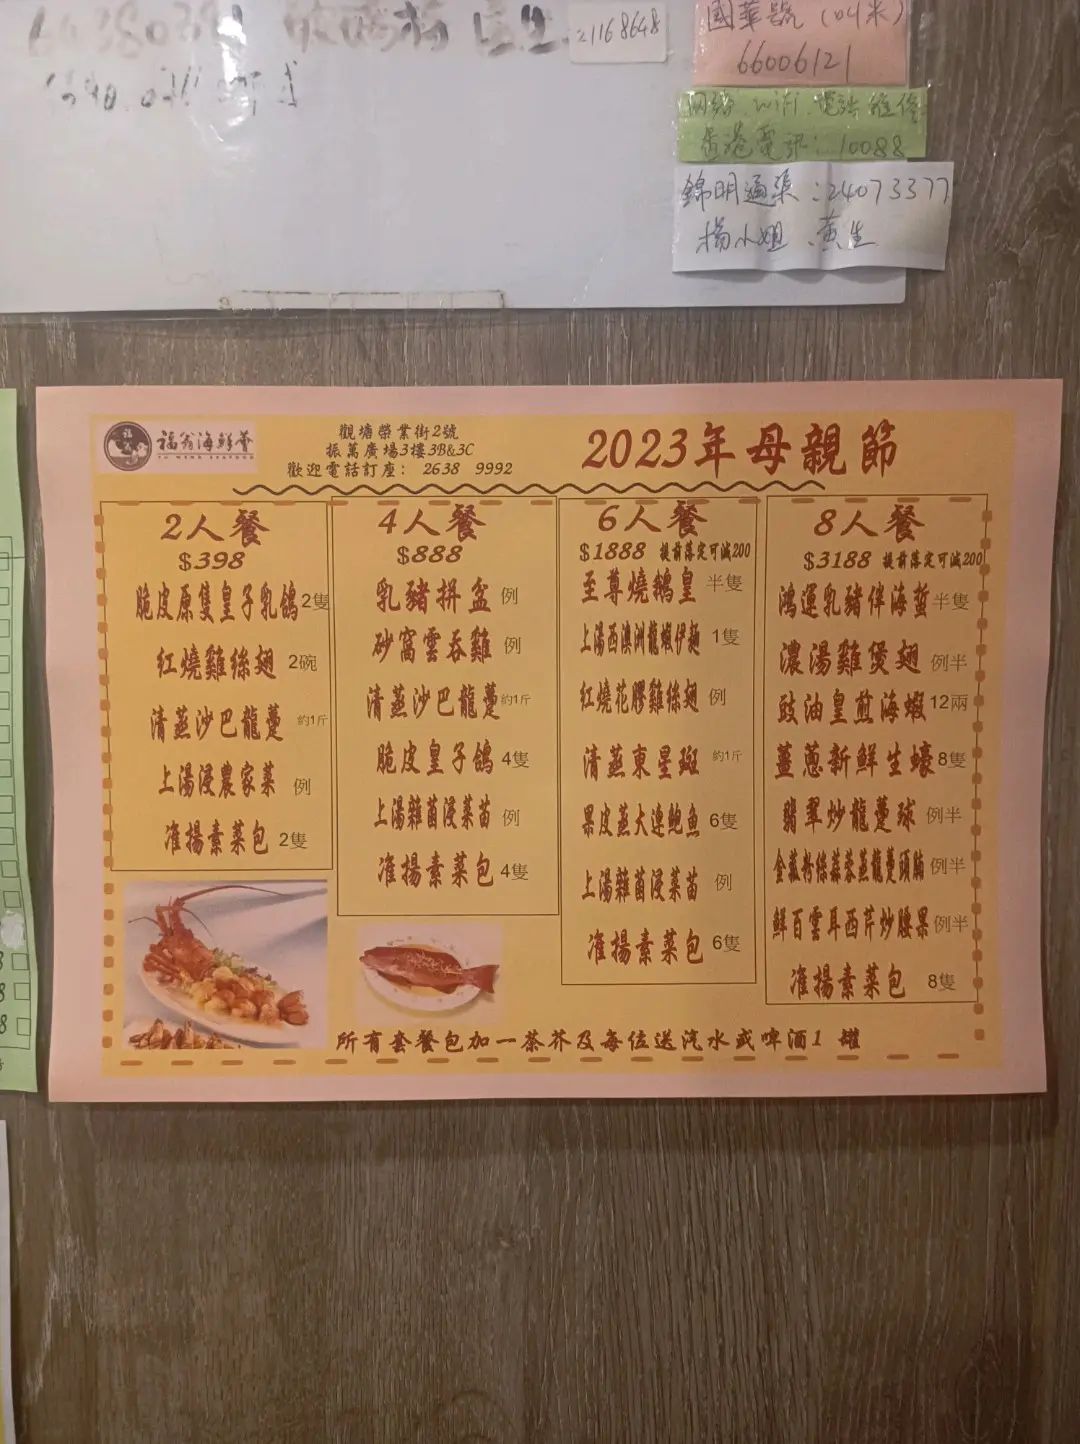 21168648
國華號（04米）
66006121
网络、wifi、電話維修
香港電訊：10088
錦明通渠：24073377
楊小姐、黃生
福翁海鮮薈
觀塘榮業街2號
振萬廣場3樓3B&3C
歡迎電話訂座： 2638 9992
2023年母親節
2人餐
$398
脆皮原隻皇子乳鴿2隻
紅燒雞絲翅 2碗
清蒸沙巴龍躉 約1斤
上湯浸農家菜 例
准揚素菜包 2隻
4人餐
$888
乳豬拼盆 例
砂窩雲吞雞 例
清蒸沙巴龍躉約1斤
脆皮皇子鴿 4隻
上湯雜菌浸菜苗 例
准揚素菜包 4隻
6人餐
$1888 提前落定可減200
至尊燒鵝皇 半隻
上湯西澳洲龍蝦伊麵 1隻
紅燒花膠雞絲翅 例
清蒸東星斑 約1斤
果皮蒸大連鮑魚 6隻
上湯雜菌浸菜苗 例
准揚素菜包 6隻
8人餐
$3188 提前落定可減200
鴻運乳豬伴海蜇 半隻
濃湯雞煲翅 例半
豉油皇煎海蝦 12兩
薑蔥新鮮生蠔 8隻
翡翠炒龍躉球 例半
金菇粉絲蒜蓉蒸龍躉頭腩 例半
鮮百雲耳西芹炒腰果 例半
准揚素菜包 8隻
所有套餐包加一茶芥及每位送汽水或啤酒1 罐